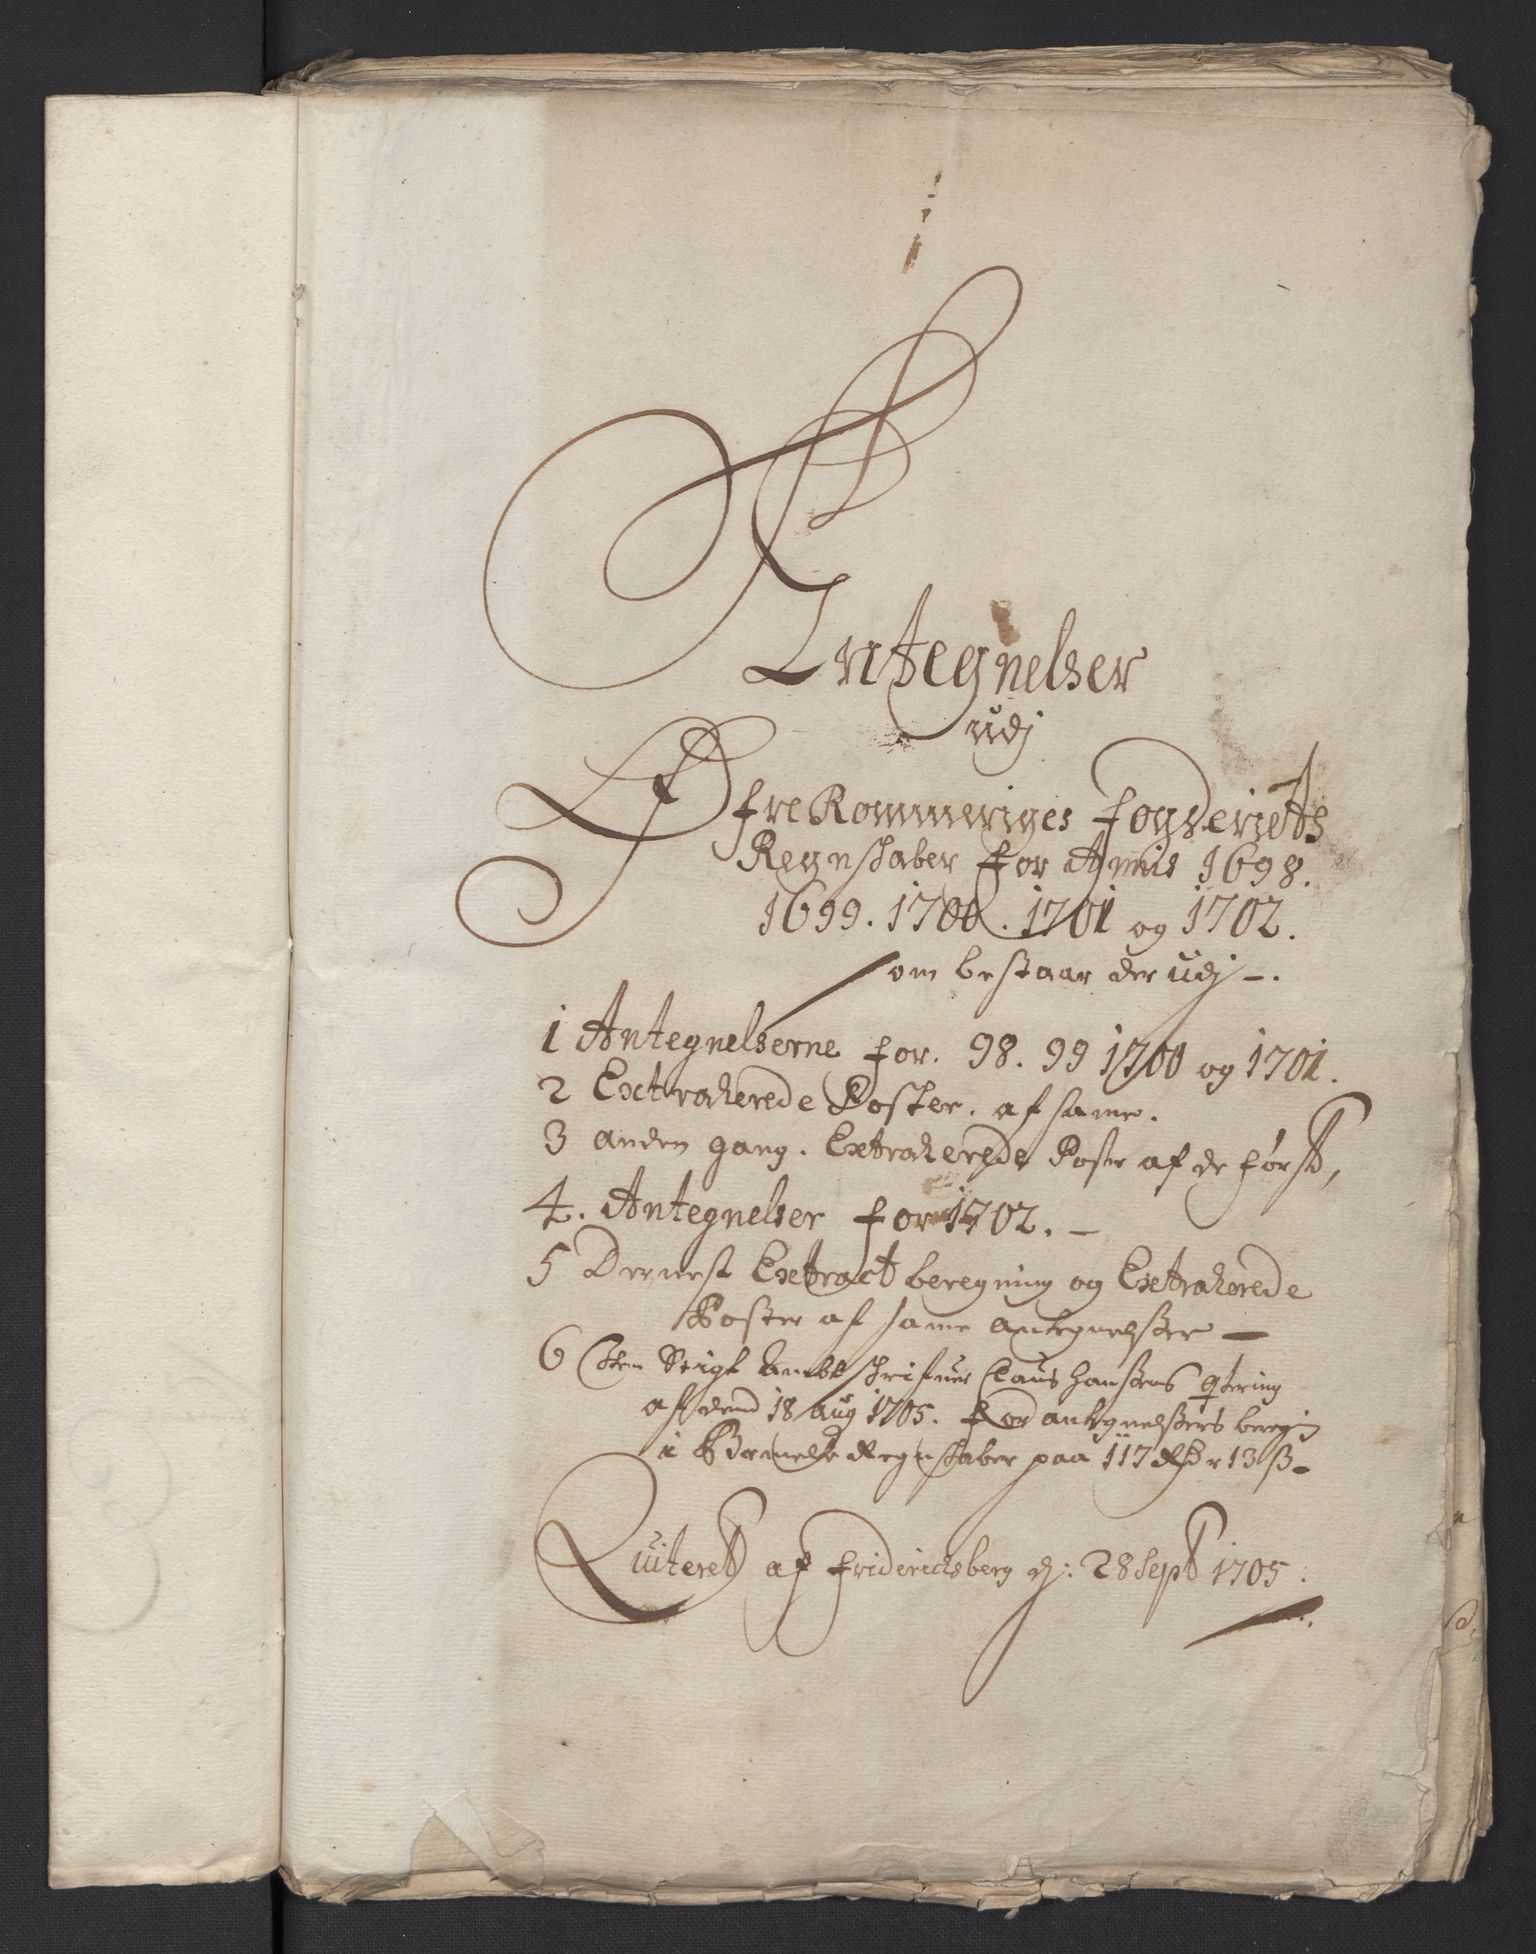 Antegnelser
udj
Øfre Rommeriges fogderjets
Regnskaber for Annis 1698.
1699. 1700. 1701 og 1702.
som bestaar der udj -.
1 Antegnelserne for. 98. 99 1700 og 1701.
2 Extraherede Poster. af same.
3 anden gang. Extraherede Poster af de først,
4. Antegnelser for 1702. -
5 Dernest Extract beregning og Extraherede
Poster af same antegnelsser -
6 Item Stigt Ambt schrifuer Claus hanssens qtering
af dend 18 aug 1705. for antegnelssers beregn
i Regnskaber paa 117 Rdr 13 ß -
Quiteret af fridericksberg dj: 28 Sept 1705.